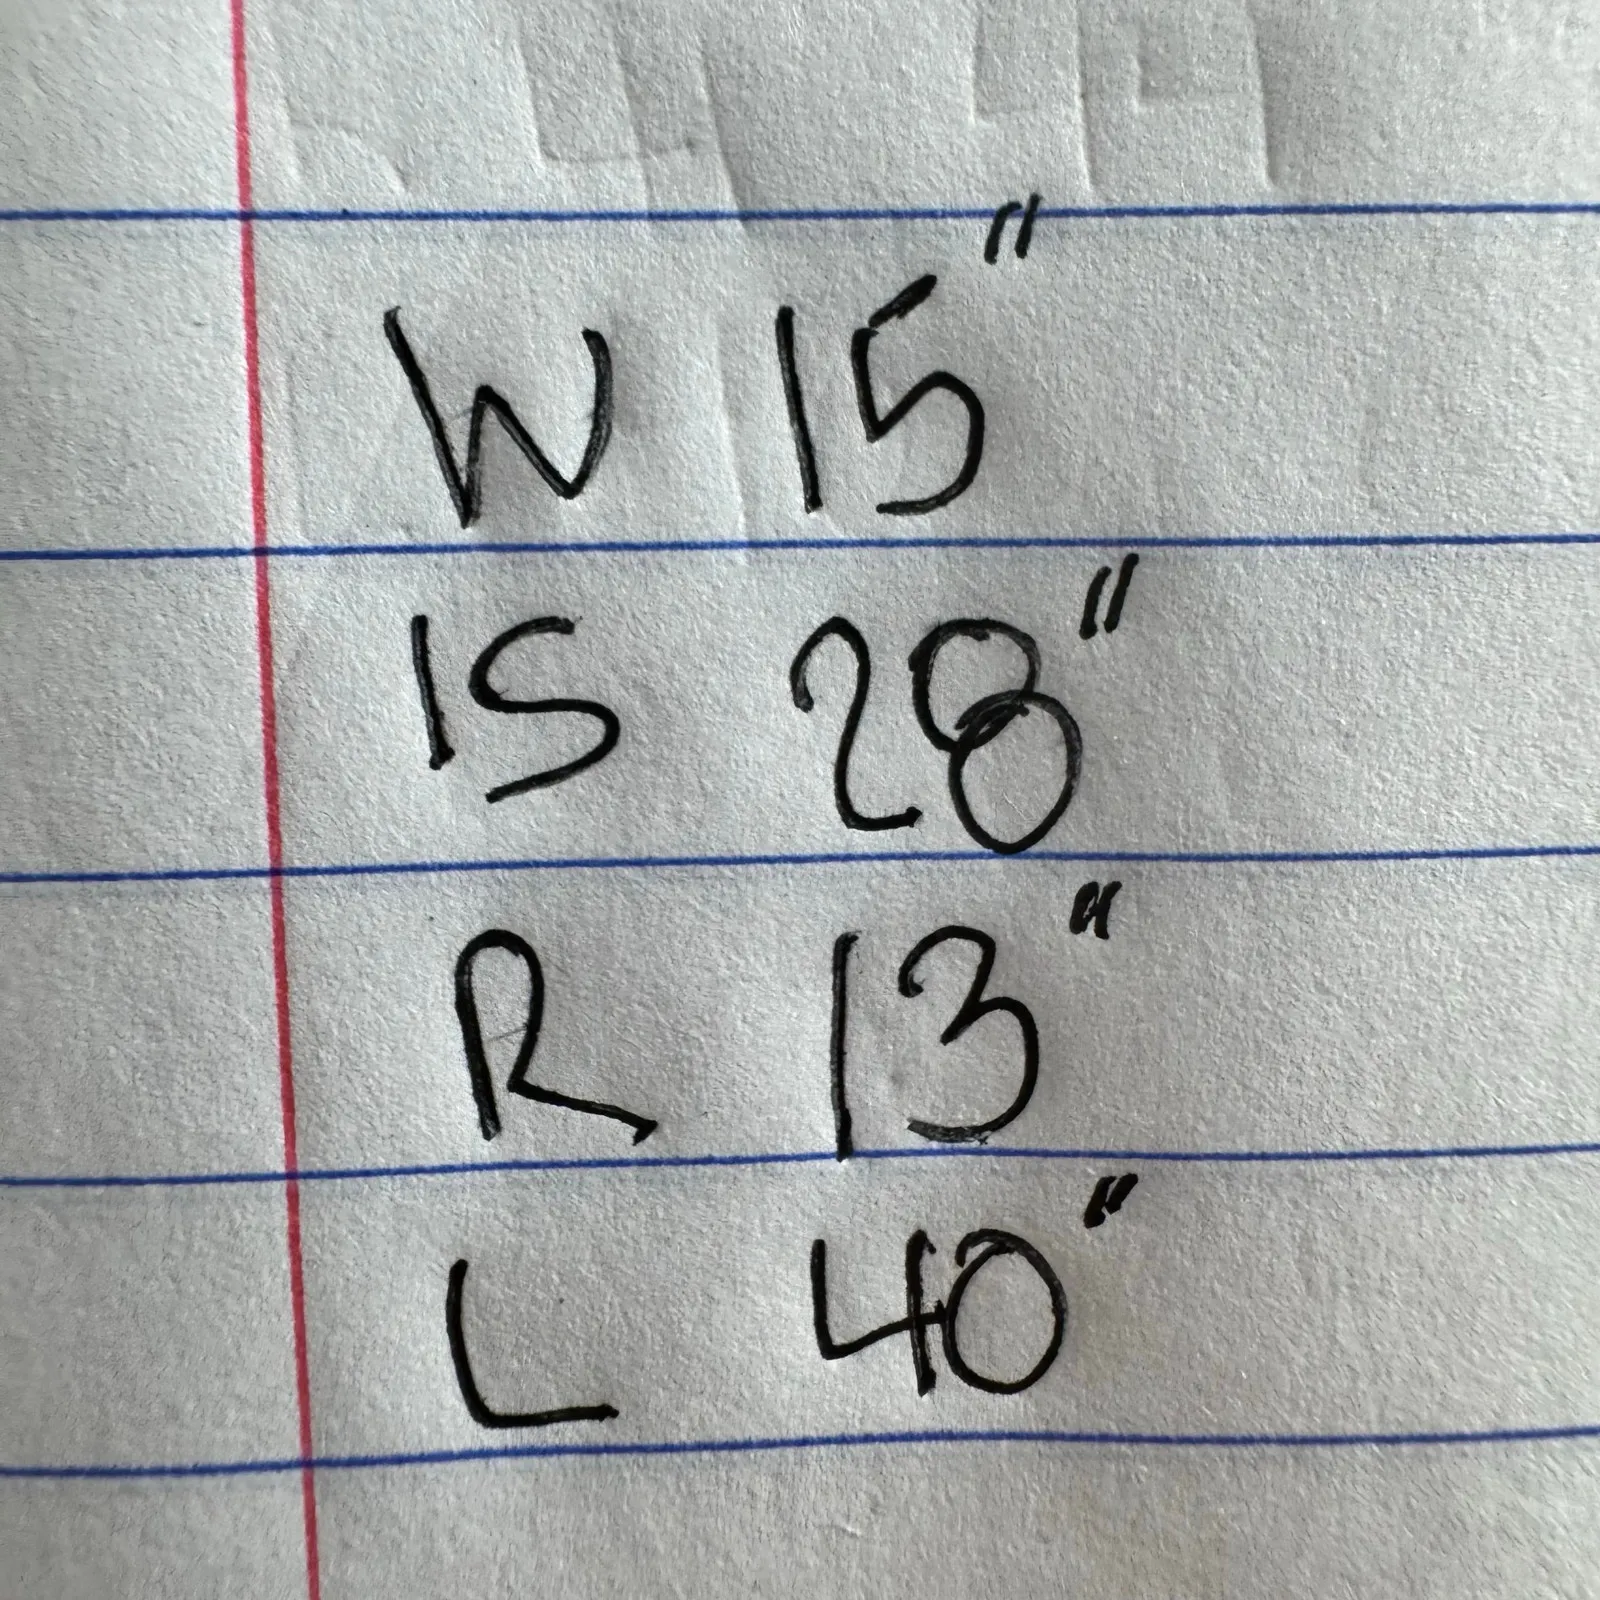 W 15"
IS 28"
R 13"
L 40"